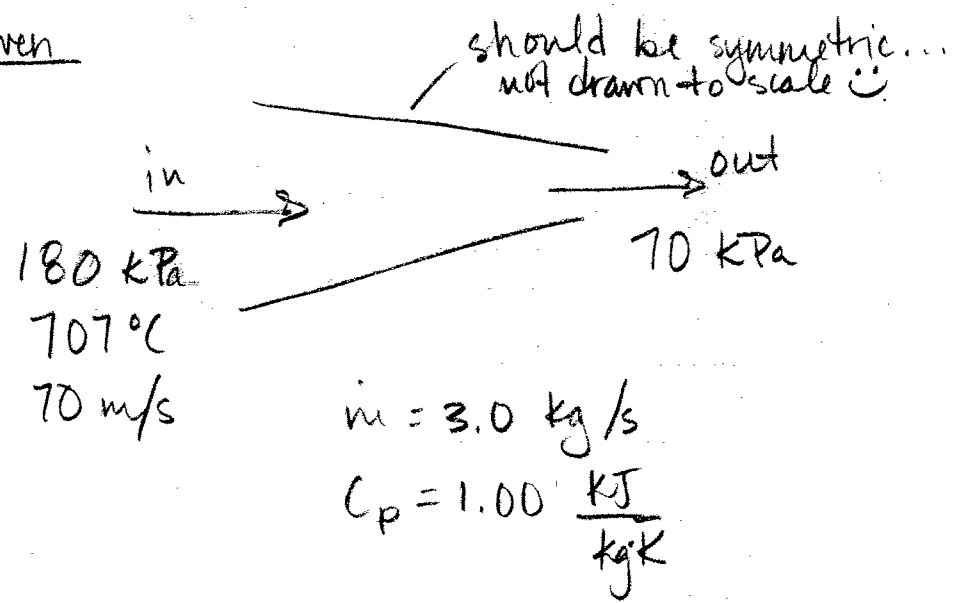 ven
should be symmetric...
not drawn to scale
in
out
180 kPa
70 kPa
707°C
70 m/s
ṁ = 3.0 kg/s
Cp = 1.00 KJ
kgK